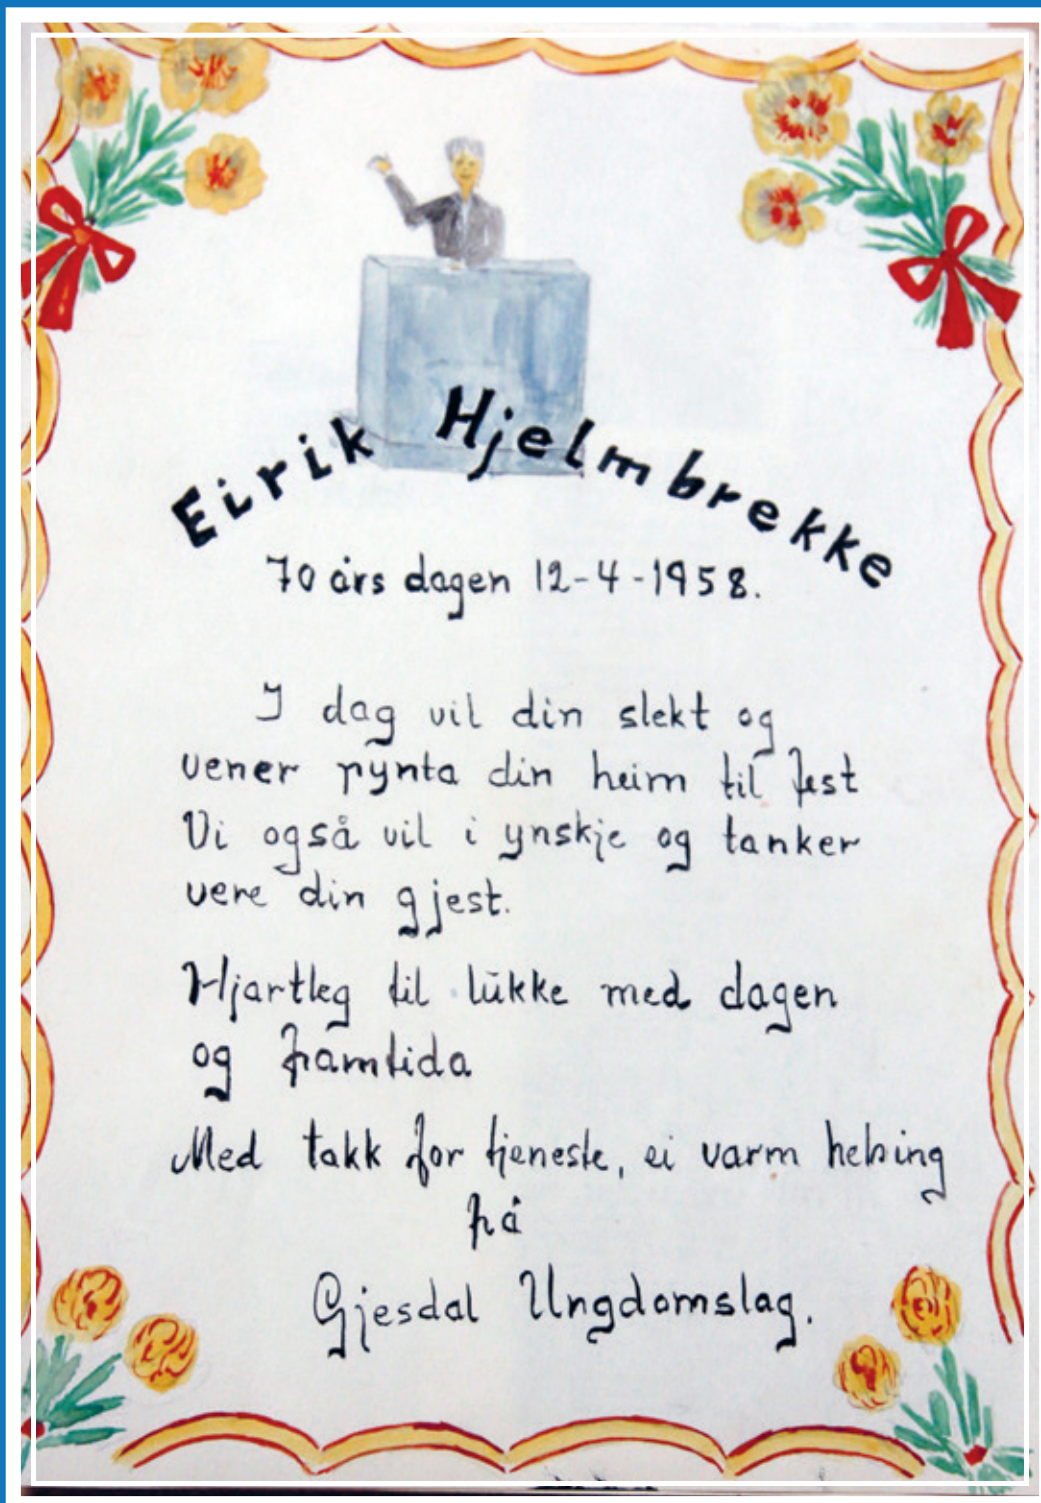 Eirik Hjelmbrekke
70 års dagen 12-4-1958.
I dag vil din slekt og
vener pynta din heim til fest
Vi også vil i ynskje og tanker
vere din gjest.
Hjartleg til lukke med dagen
og framtida
Med takk for tjeneste, ei varm helsing
på
Gjesdal Ungdomslag.